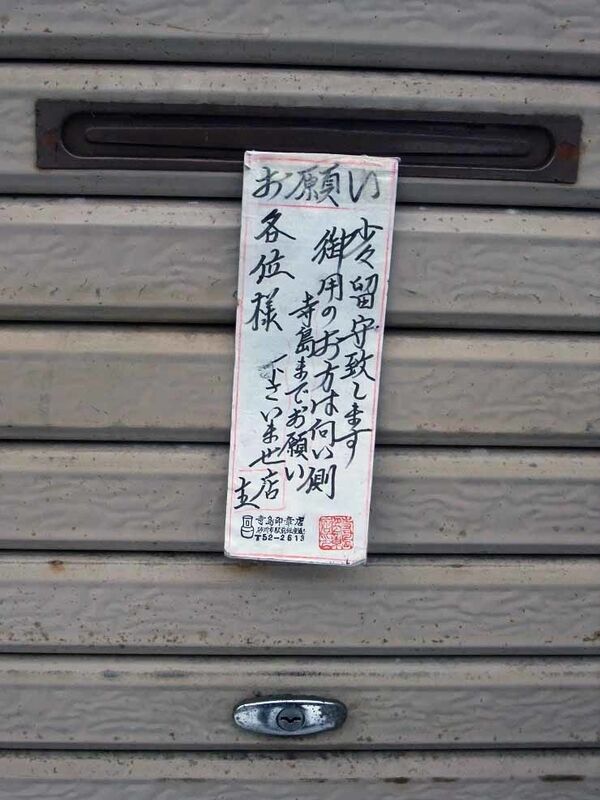 お願い
少々留守致します
御用のお方は向い側
寺島までお願い
下さいませ
各位様
店主
寺島印章店
砂川市駅前銀座通り
☎52-2613